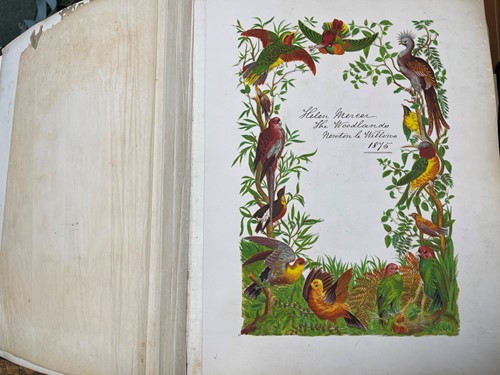 Helen Mercer
The Woodlands
Newton le Willows
1875